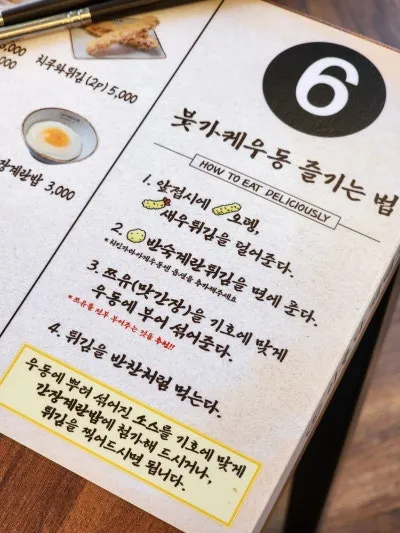 3,000
000
치쿠와튀김(2p) 5,000
장계란밥 3,000
6
붓가케우동 즐기는 법
HOW TO EAT DELICIOUSLY
1. 앞접시에 오뎅,
새우튀김을 덜어준다.
2. 반숙계란튀김을 면에 푼다.
3. 쯔유(맛간장)을 기호에 맞게
우동에 부어 섞어준다.
*쯔유를 전부 부어주는 것을 추천!!
4. 튀김을 반찬처럼 먹는다.
우동에 뿌려 섞어진 소스를 기호에 맞게
간장계란밥에 첨가해 드시거나,
튀김을 찍어드시면 됩니다.